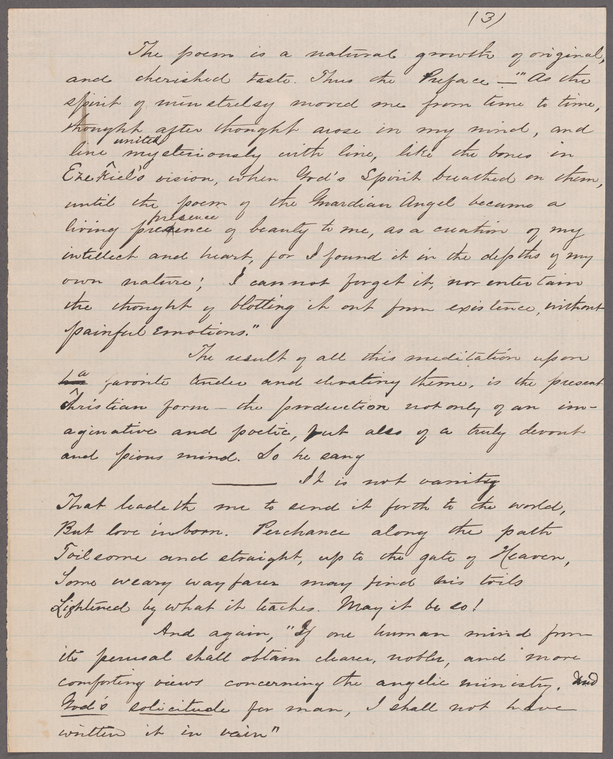 (3)
The poem is a natural growth of original,
and cherished taste. Thus the Preface — "As the
spirit of minstrelsy moved me from time to time,
thought after thought arose in my mind, and
united
line mysteriously with line, like the bones in
Ezekiel's vision, when God's Spirit breathed on them,
until the poem of the Guardian Angel became a
presence
living presence of beauty to me, as a creation of my
intellect and heart, for I found it in the depths of my
own nature; I cannot forget it, nor entertain
the thought of blotting it out from existence, without
painful emotions."
The result of all this meditation upon
a
favorite tender and elevating theme, is the present
Christian form — the production not only of an im-
aginative and poetic, but also of a truly devout
and pious mind. So he sang
—— It is not vanity
That leadeth me to send it forth to the world,
But love inborn. Perchance along the path
Toilsome and straight, up to the gate of Heaven,
Some weary wayfarer may find his toils
Lightened by what it teaches. May it be so!
And again, "If one human mind from
its perusal shall obtain clearer, nobler, and more
comforting views concerning the angelic ministry, and
God's solicitude for man, I shall not have
written it in vain"